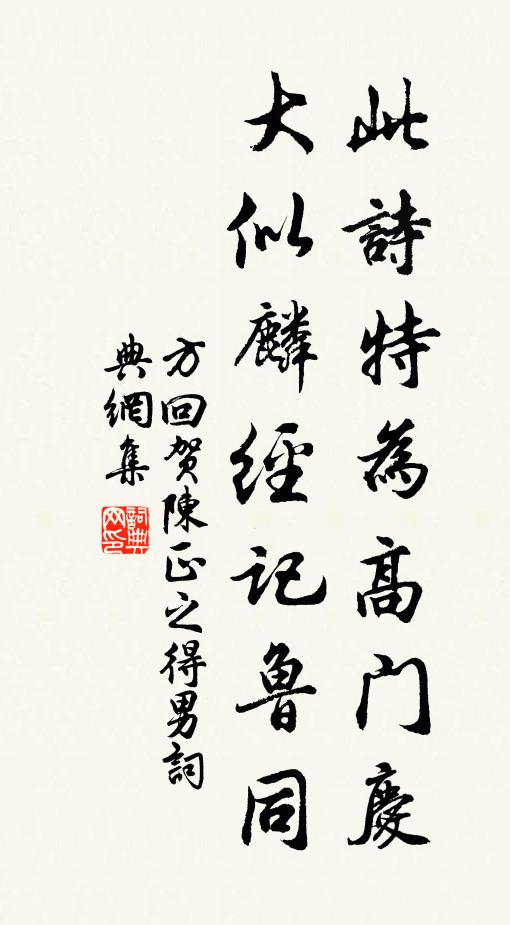 此詩特為高門慶
大似麟經記魯同
方回賀陳正之得男詞
典網集
詞典网印